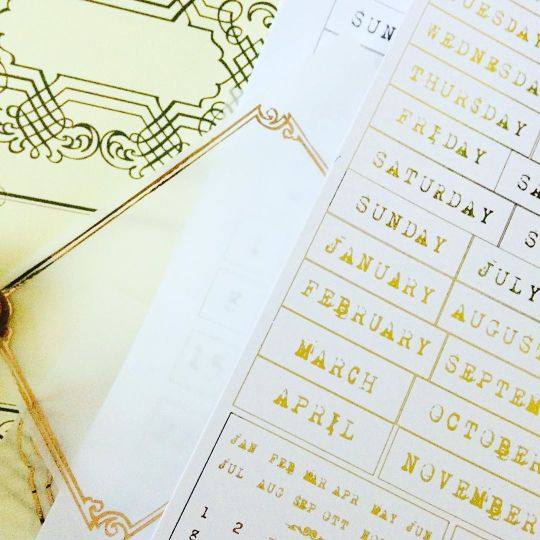 SUN
TUESDAY
WEDNESDA
THURSDAY
FRIDAY SA
SATURDAY S
SUNDAY JULY
JANUARY AUGUS
FEBRUARY SEPTEM
MARCH OCTOBER
APRIL NOVEMBER
JAN FEB MAR APR MAY JUN
JUL AUG SEP OTT NOV
1 2
8